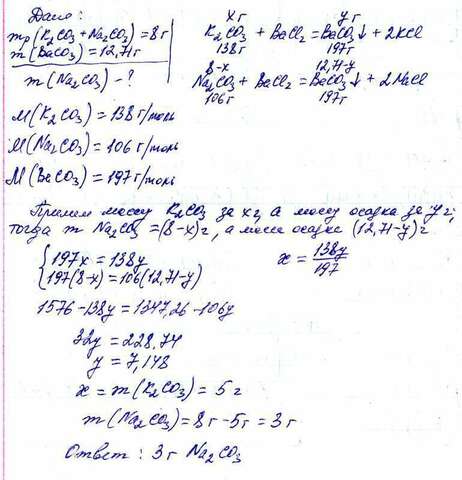 Дано:
mр(K₂CO₃+Na₂CO₃)=8г
m(BaCO₃)=12,71г
m(Na₂CO₃)-?
хг уг
K₂CO₃ + BaCl₂ = BaCO₃↓ + 2KCl
138г 197г
8-х 12,71-у
Na₂CO₃ + BaCl₂ = BaCO₃↓ + 2NaCl
106г 197г
M(K₂CO₃)=138г/моль
M(Na₂CO₃)=106г/моль
M(BaCO₃)=197г/моль
Примем массу K₂CO₃ за хг, а массу осадка за уг,
тогда m Na₂CO₃=(8-х)г, а масс осадка (12,71-у)г
{197х=138у
197(8-х)=106(12,71-у)
х=138у/197
1576-138у=1347,26-106у
32у=228,74
у=7,148
х=m(K₂CO₃)=5г
m(Na₂CO₃)=8г-5г=3г
Ответ: 3г Na₂CO₃